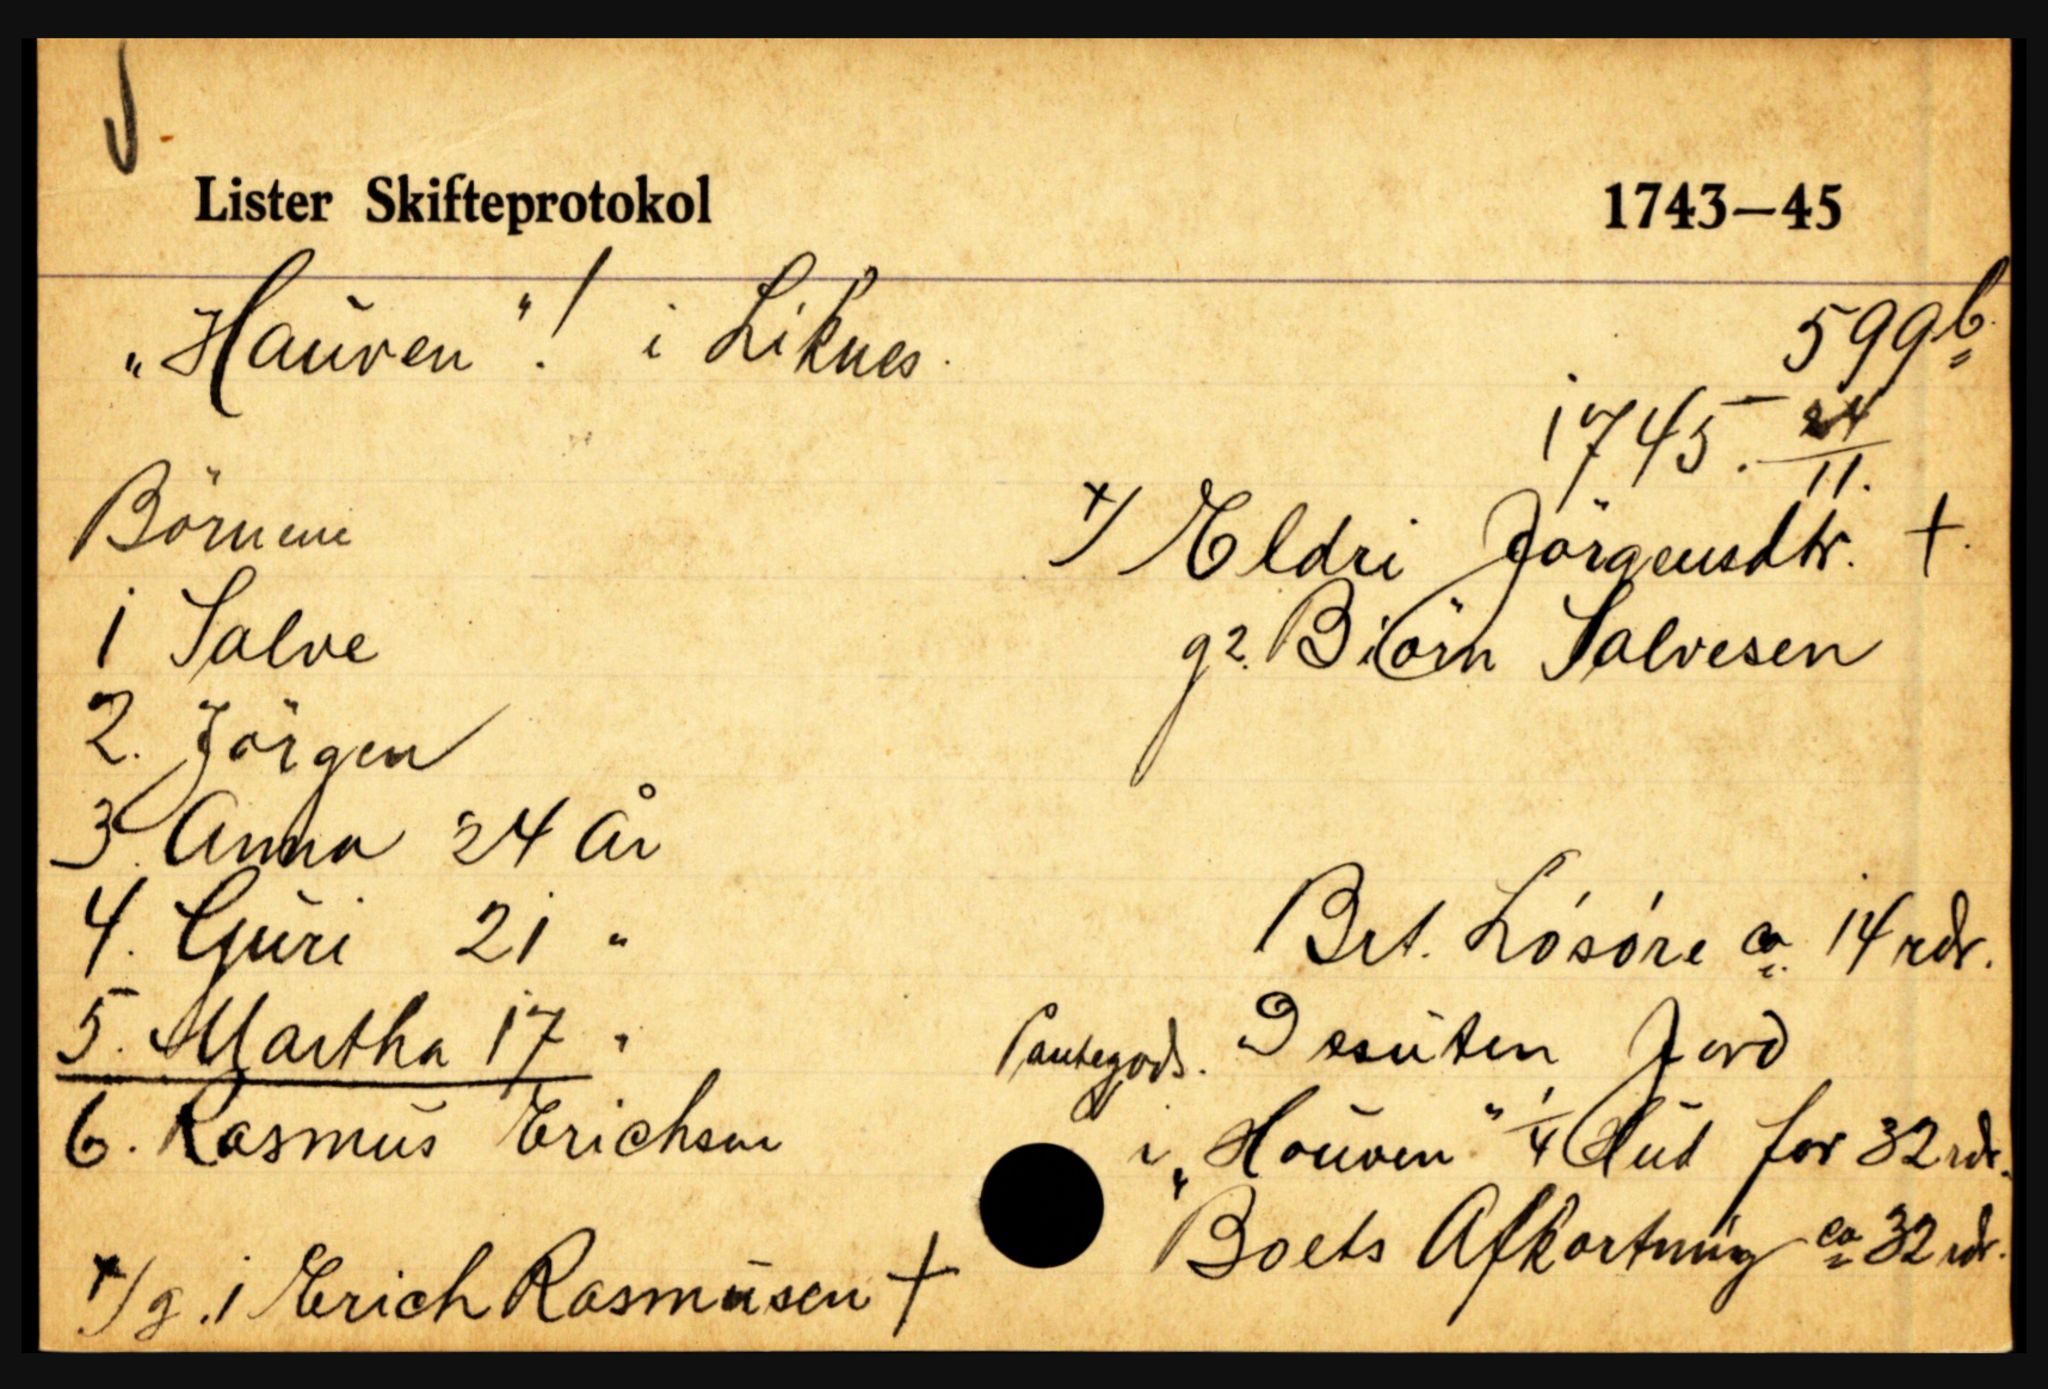 Lister Skifteprotokol 1743—45
„Hauven"! i Liknes.
599b
1745. 24/11.
Börnene
x/ Eldri Jörgensdtr. †.
1 Salve
g2. Biörn Salvesen
2. Jörgen
3. Anna 24 år
4. Guri 21 "
Brt. Lósóre ca 14 rdr.
5. Martha 17 "
Pantegods. Desuten Jord
6. Rasmus Erichsen
i „Houven" 1/4 Hud for 32 rdr.
Boets Afkortning ca 32 rdr.
x/ g. 1 Erich Rasmusen †